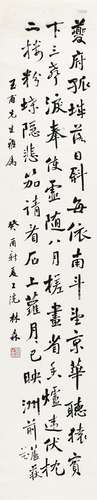 夔府孤城落日斜每依南斗望京華聽猿實
下三聲淚奉使虛隨八月槎畫省香爐違伏枕
山樓粉堞隱悲笳請看石上蘿月已映洲前蘆荻
先生雅屬
癸酉新夏上浣 林森